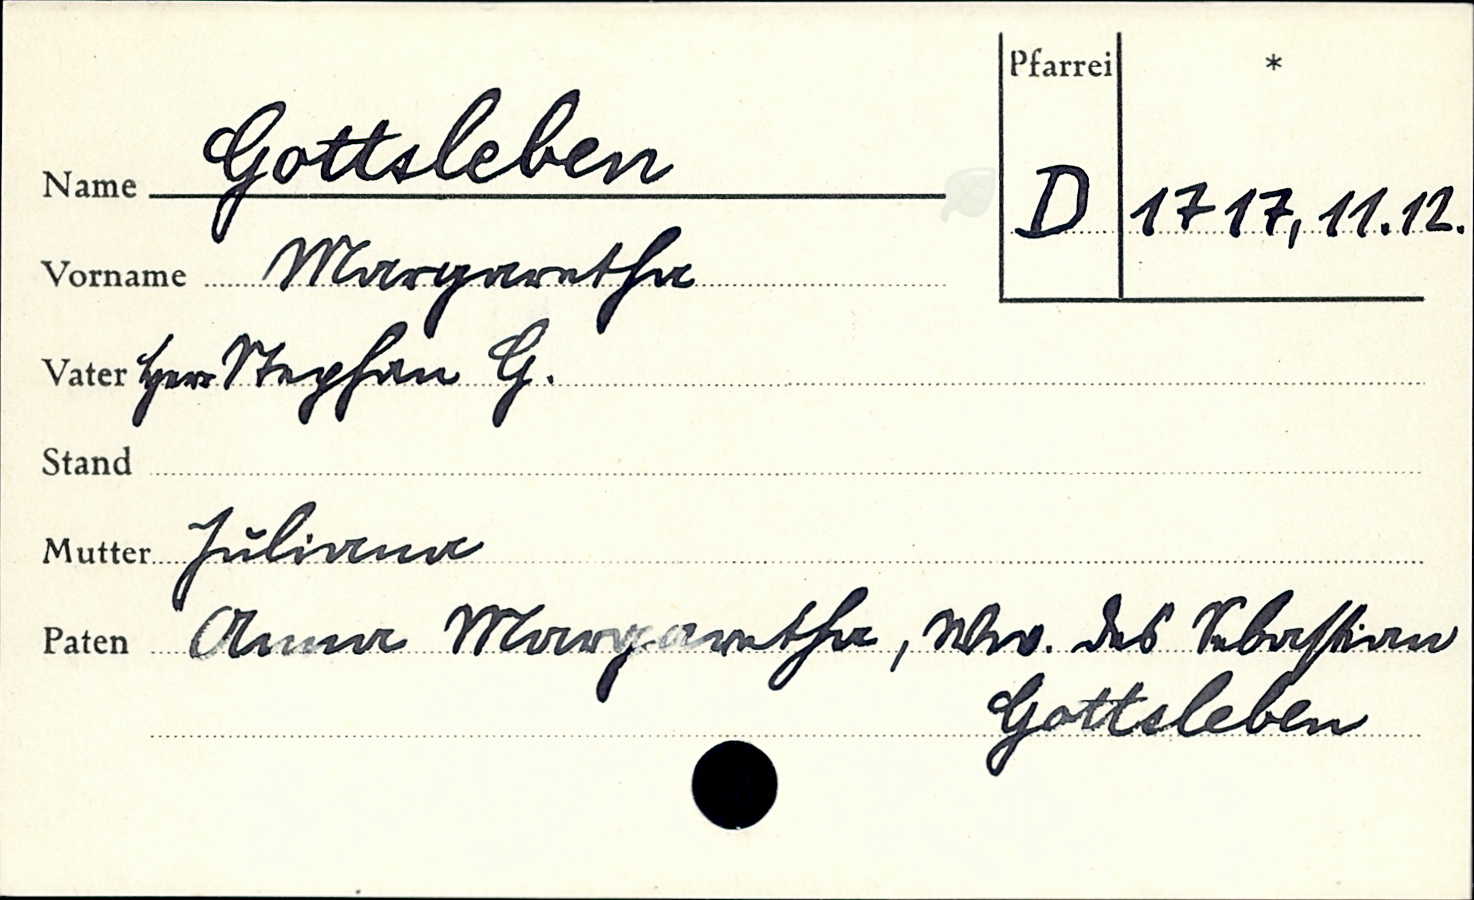 Pfarrei *
Name Gottsleben
D 1717, 11.12.
Vorname Margaretha
Vater Herr Stephan G.
Stand
Mutter Juliana
Paten Anna Margaretha, Ww. des Sebastian
Gottsleben